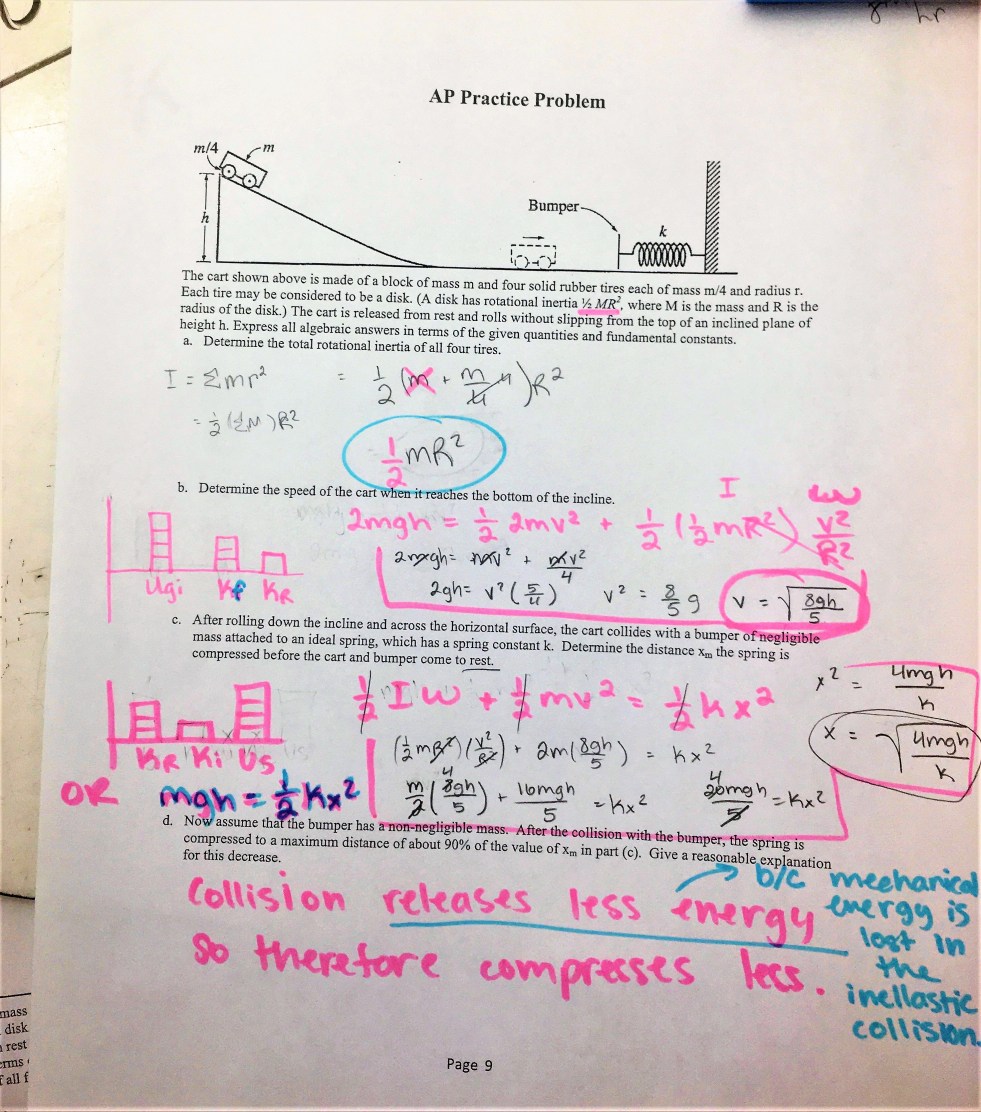 hr
AP Practice Problem
m/4
m
h
Bumper
k
The cart shown above is made of a block of mass m and four solid rubber tires each of mass m/4 and radius r.
Each tire may be considered to be a disk. (A disk has rotational inertia ½ MR², where M is the mass and R is the
radius of the disk.) The cart is released from rest and rolls without slipping from the top of an inclined plane of
height h. Express all algebraic answers in terms of the given quantities and fundamental constants.
a. Determine the total rotational inertia of all four tires.
I = Σmr² = 1/2 (m + m/4 4)R²
= 1/2 (ΣM)R²
1/2 mR²
b. Determine the speed of the cart when it reaches the bottom of the incline.
I ω
2mgh = 1/2 2mv² + 1/2 (1/2 mR²) v²/R²
2mgh = mv² + mv²/4
2gh = v² (5/4) v² = 8/5 g v = √8gh/5
Ugi Kf KR
c. After rolling down the incline and across the horizontal surface, the cart collides with a bumper of negligible
mass attached to an ideal spring, which has a spring constant k. Determine the distance xm the spring is
compressed before the cart and bumper come to rest.
1/2 Iω + 1/2 mv² = 1/2 kx²
x² = 4mgh/k
(1/2 mR²)(v²/R²) + 2m(8gh/5) = kx²
x = √4mgh/k
KR Ki Us
m/2 (8gh/5) + 16mgh/5 = kx² 20mgh/5 = kx²
4
4
OR mgh = 1/2 kx²
d. Now assume that the bumper has a non-negligible mass. After the collision with the bumper, the spring is
compressed to a maximum distance of about 90% of the value of xm in part (c). Give a reasonable explanation
for this decrease.
Collision releases less energy
so therefore compresses less.
b/c mechanical
energy is
lost in
the
inellastic
collision.
mass
disk
rest
erms
f all f
Page 9